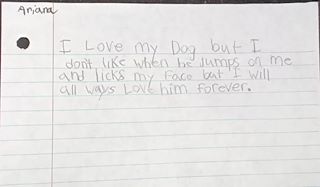 Anjana
I Love my Dog but I
don't like when he Jumps on me
and licks my face but I will
all ways Love him forever.